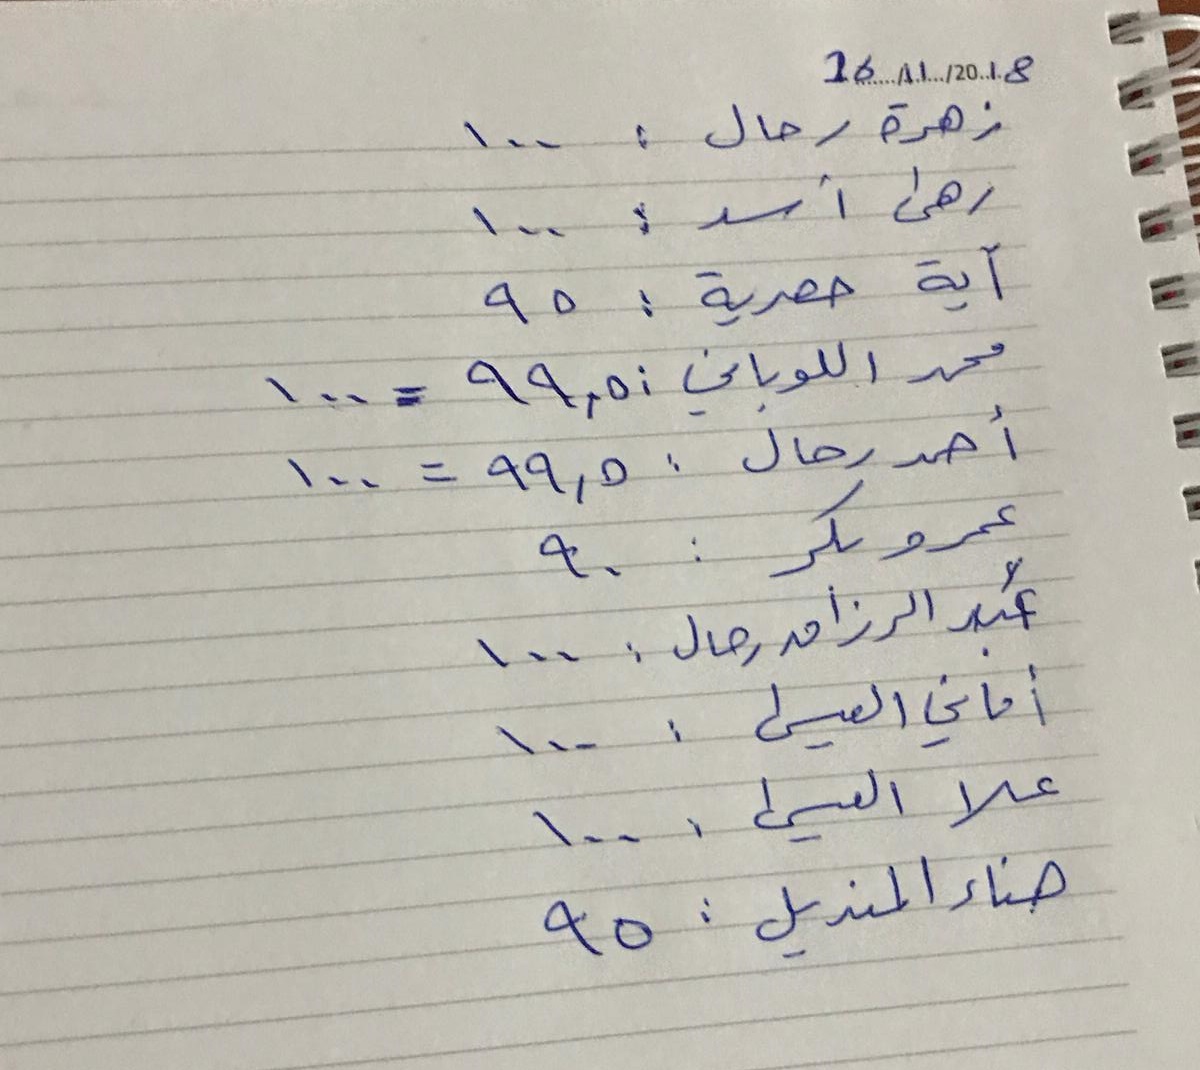 16..../11.../20.18
زهرة رحال : ١٠٠
زهى أسد : ١٠٠
آية حصرية : ٩٥
محمد اللوباني : ٩٩,٥ = ١٠٠
أحمد رحال : ٩٩,٥ = ١٠٠
عمرو سكر : ٩٠
عبد الرزاق رحال : ١٠٠
أماني العيسى : ١٠٠
علا العيسى : ١٠٠
هناء المنديل : ٩٥